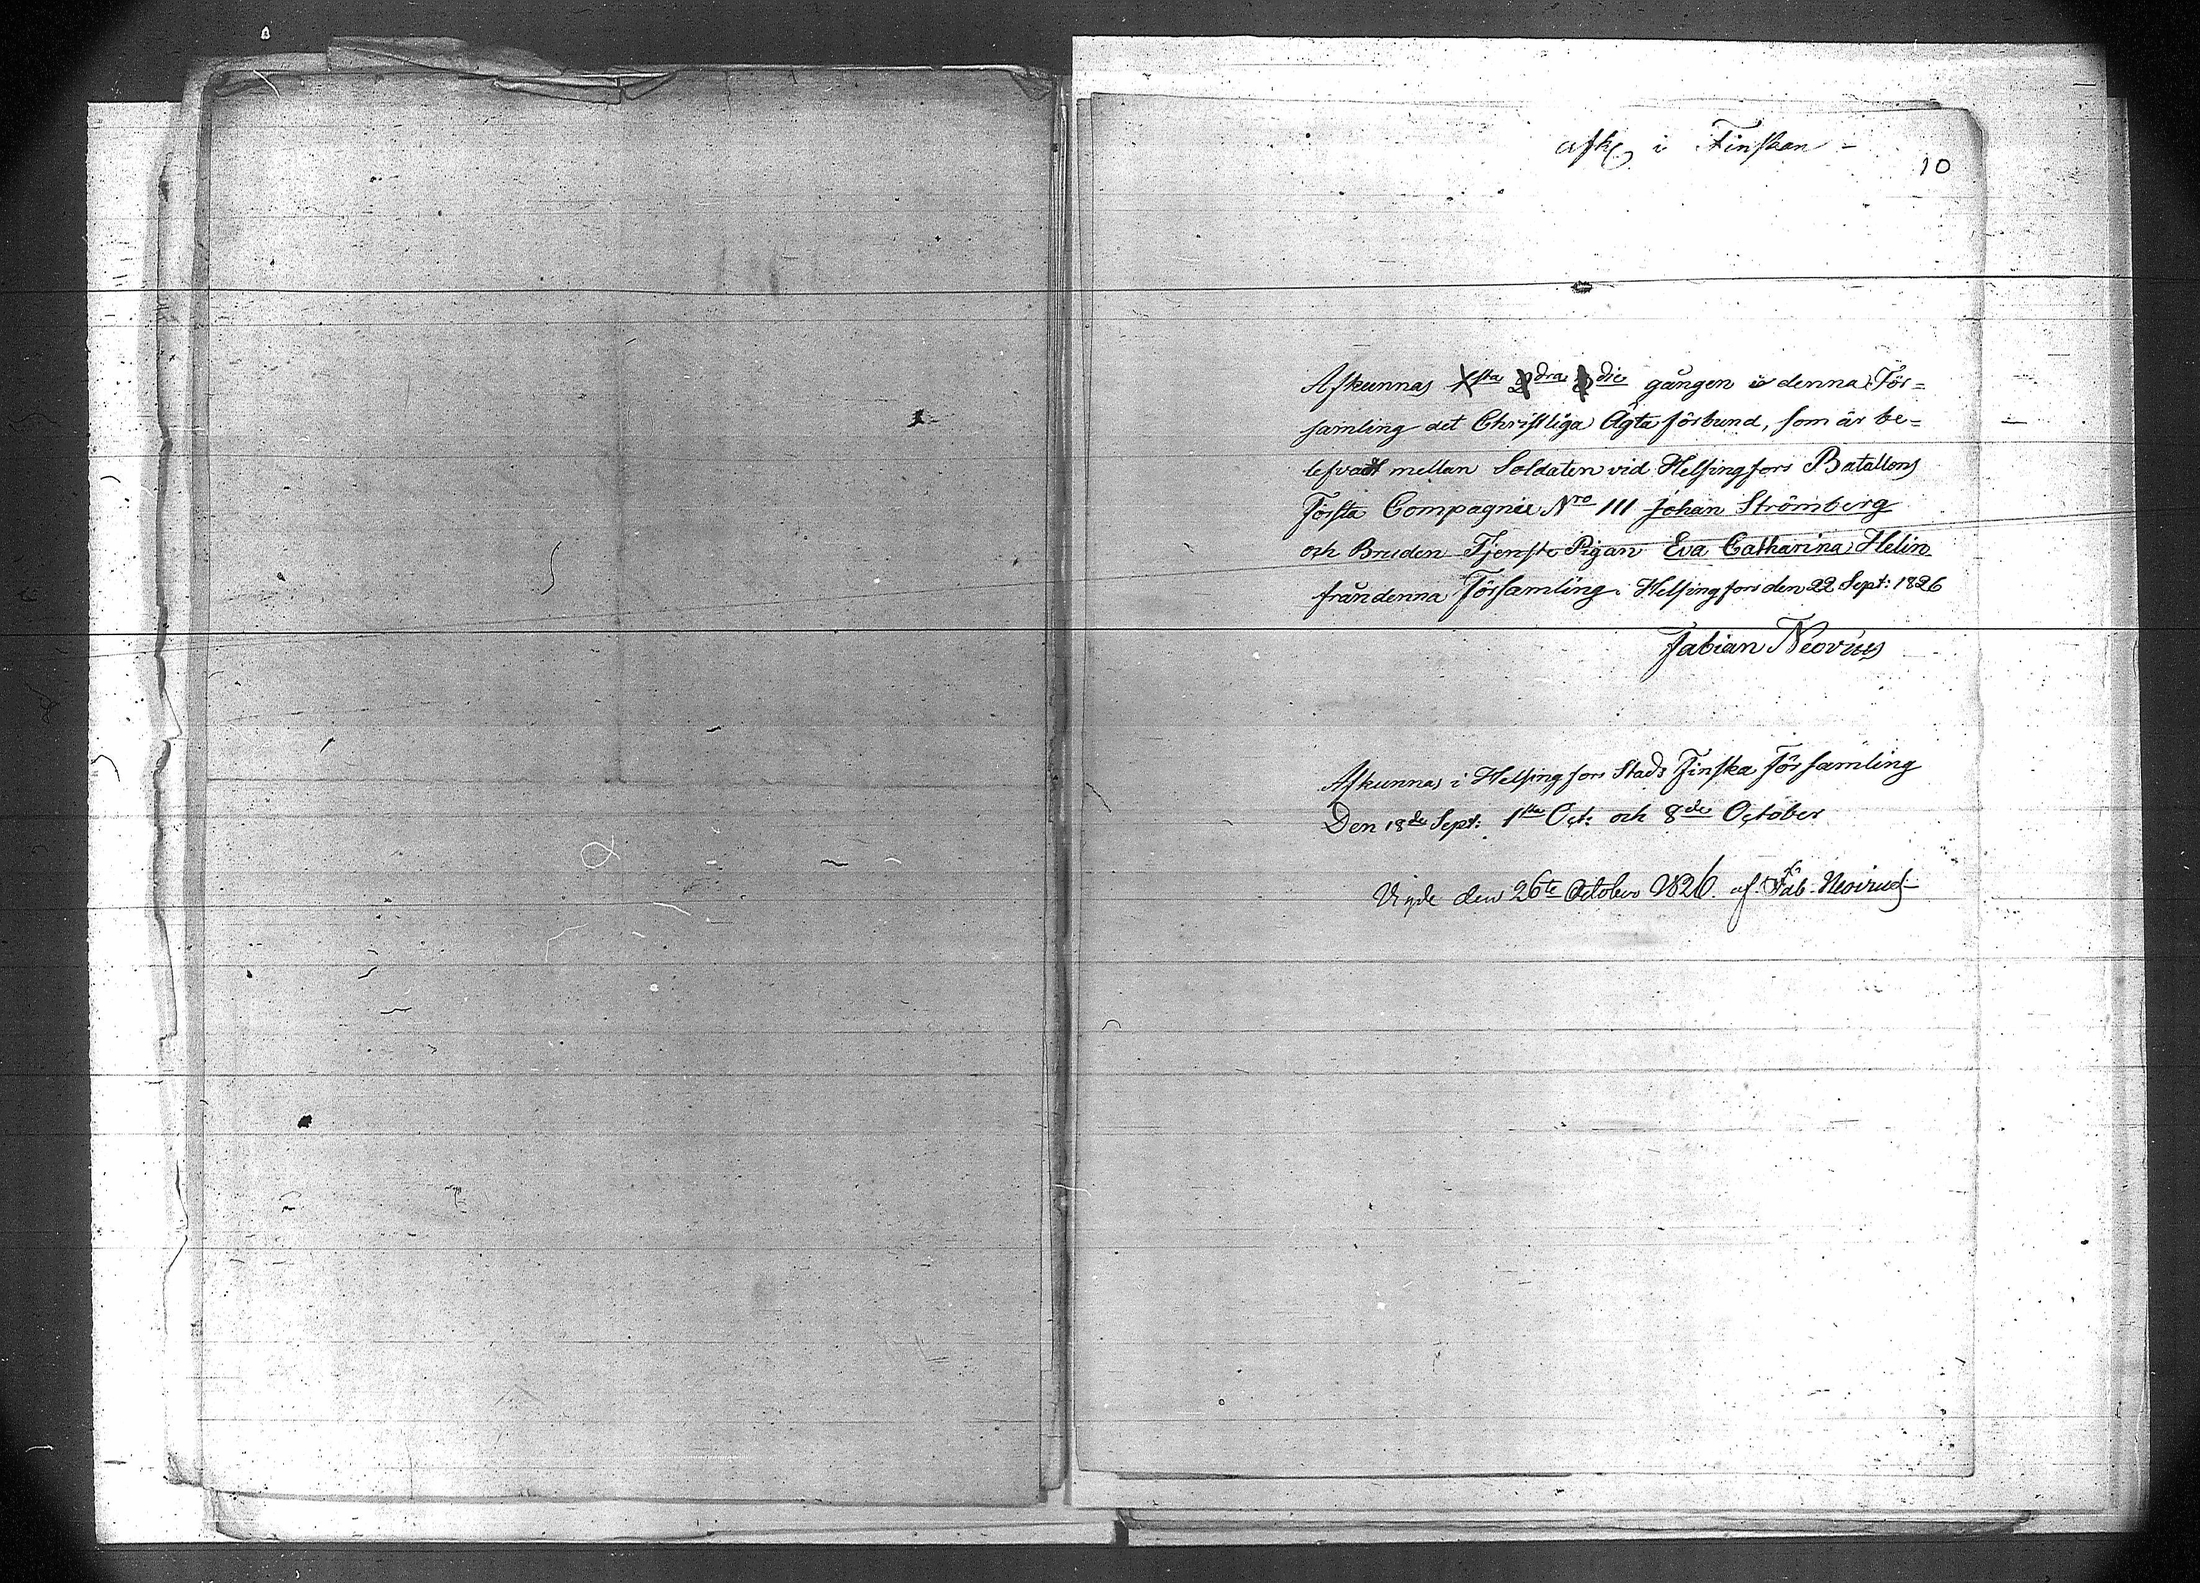 afk i Finskan -
10
Afkunnas 1sta 2dra 3die gången i denna För=
samling det Christliga Ägta förbund, som är be=
lefvadt mellan Soldaten vid Helsingfors Bataillons
Första Compagnie Nro 111 Johan Strömberg
och Bruden Tjenste Pigan Eva Catharina Helin
från denna Församling. Helsingfors den 22 Sept: 1826
Fabian Neovius
Afkunnas i Helsingfors Stads Finska Församling
Den 18de Sept: 1sta Oct: och 8de October
Vigde den 26te October 1826. af. Fab. Neovius